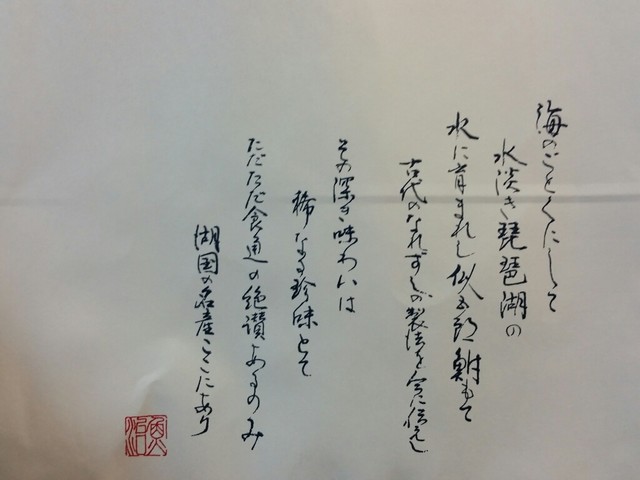 海のごとくにして
水淡き琵琶湖の
水に育まれし似五郎鮒もて
古代のなれずしの製法を今に伝えし
その深き味わいは
稀なる珍味とて
ただただ食通の絶讃あるのみ
湖国の名産ここにあり
魚治